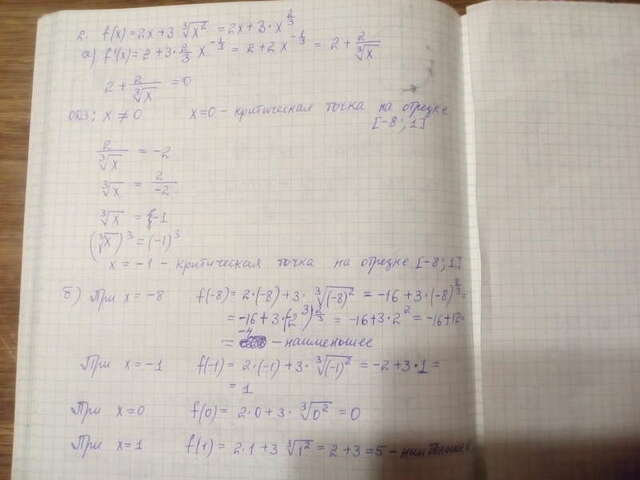 2. f(x)=2x+3∛x² = 2x+3·x^(2/3)
a) f'(x)=2+3·2/3 x^(-1/3) = 2+2x^(-1/3) = 2+2/∛x
2+2/∛x =0
ОДЗ: x≠0 x=0 - критическая точка на отрезке
[-8;1]
2/∛x = -2
∛x = 2/-2
∛x = -1
(∛x)³=(-1)³
x=-1 - критическая точка на отрезке [-8;1]
б) При x=-8 f(-8)=2·(-8)+3·∛(-8)² = -16+3·(-8)^(2/3) =
= -16+3·(-2³)^(2/3) = -16+3·2² = -16+12=
= -4 - наименьшее
При x=-1 f(-1)=2·(-1)+3·∛(-1)² = -2+3·1=
= 1
При x=0 f(0)= 2·0+3·∛0² = 0
При x=1 f(1)=2·1+3∛1² = 2+3=5 -